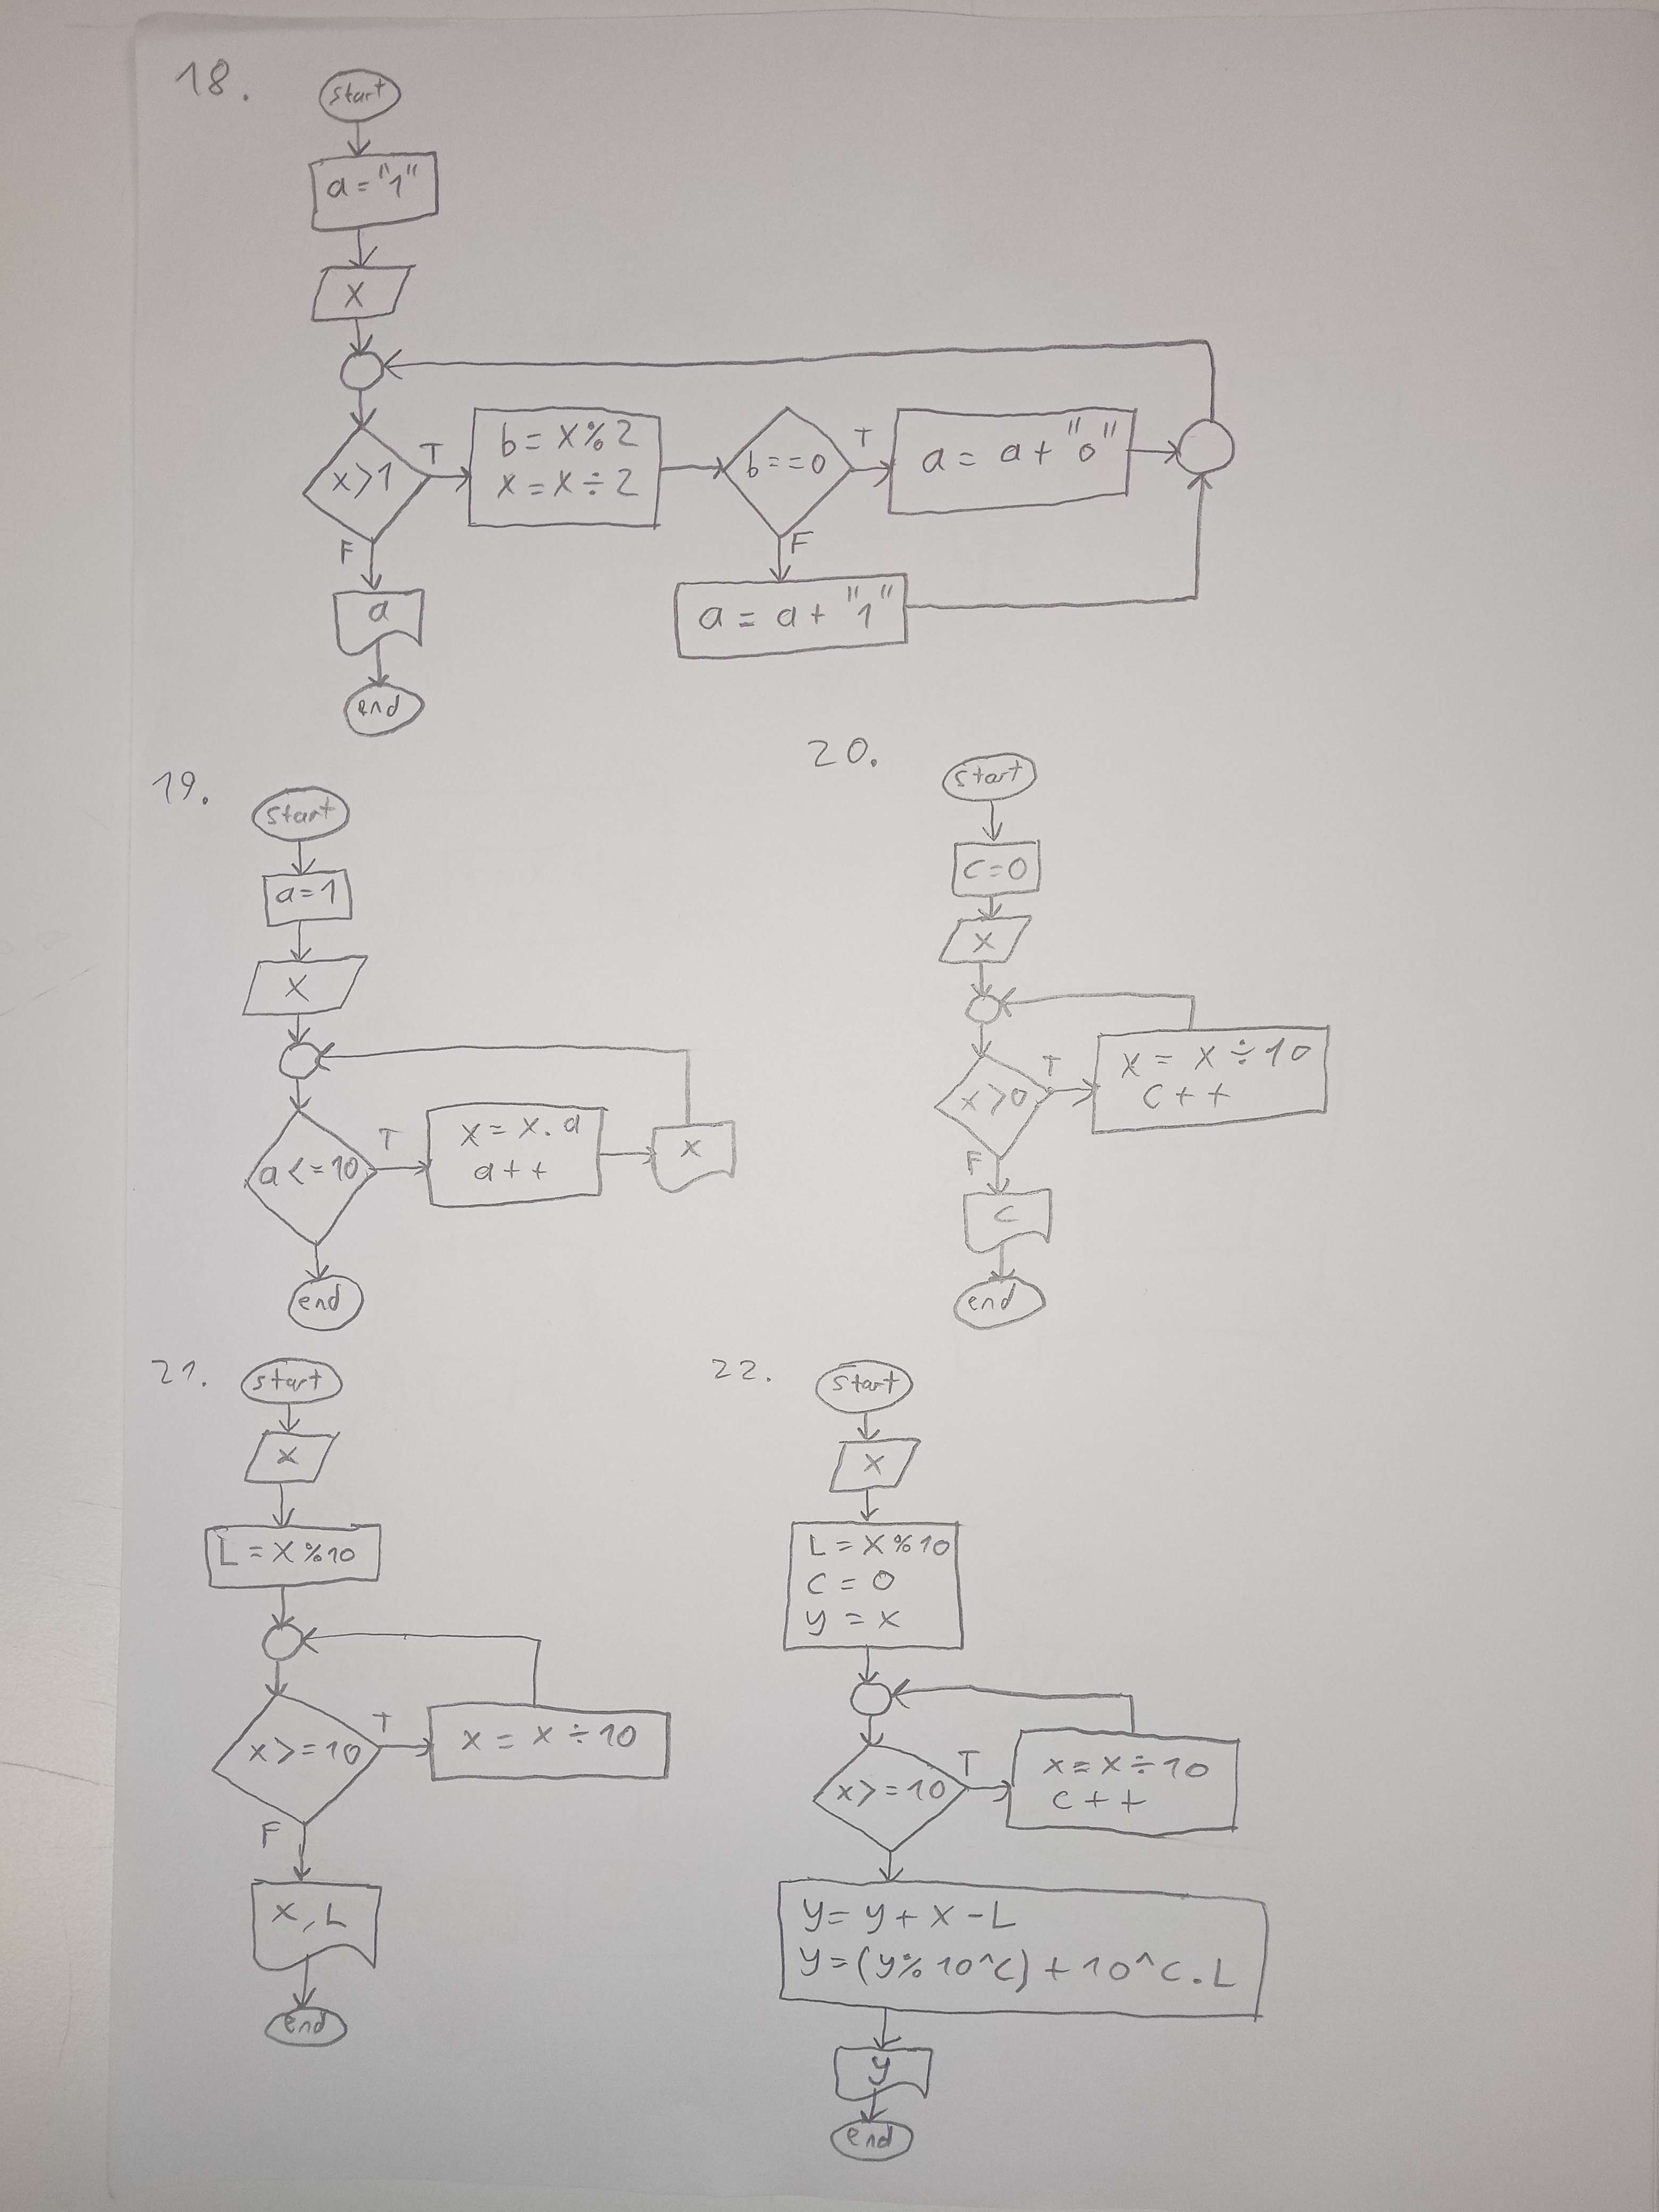 18.
start
a = "1"
x
x > 1
T
b = x % 2
x = x ÷ 2
b = = 0
T
a = a + "0"
F
a
F
a = a + "1"
end
19.
start
a = 1
x
a < = 10
T
x = x . a
a + +
x
end
20.
start
c = 0
x
x > 0
T
x = x ÷ 10
c + +
F
c
end
21.
start
x
L = x % 10
x > = 10
T
x = x ÷ 10
F
x, L
end
22.
start
x
L = x % 10
c = 0
y = x
x > = 10
T
x = x ÷ 10
c + +
y = y + x - L
y = (y % 10 ^ c) + 10 ^ c . L
y
end